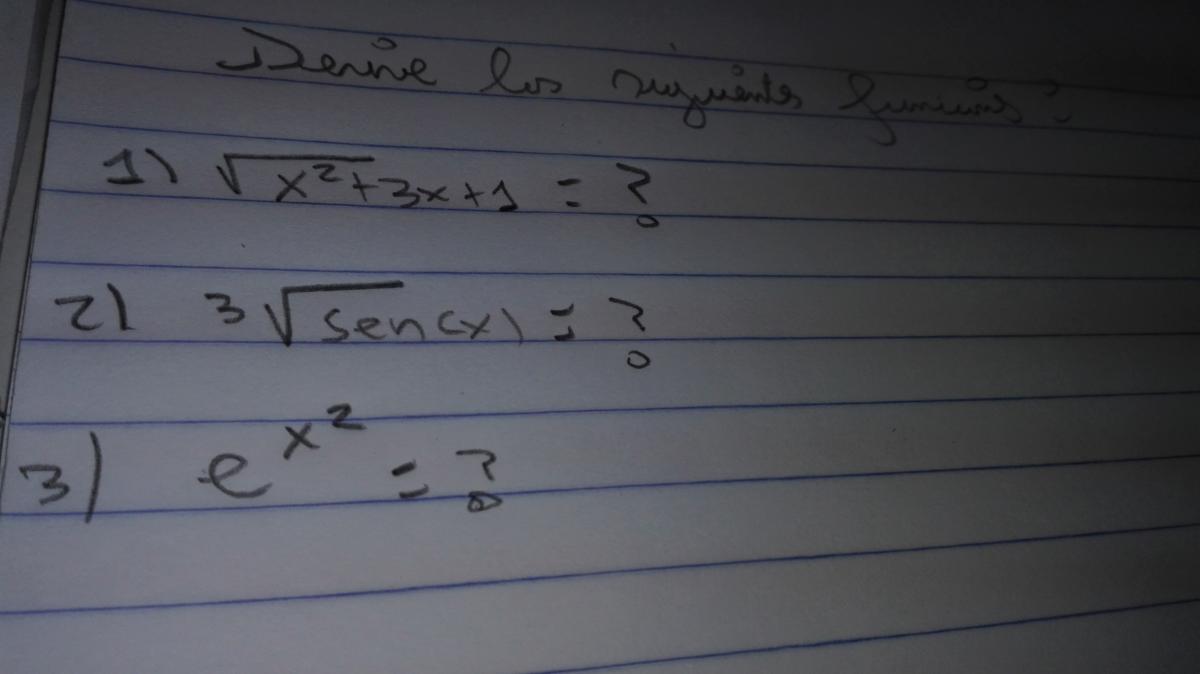 Derive los siguientes funciones:
1) √x²+3x+1 = ?
2) 3√sen(x) = ?
3) e^x² = ?